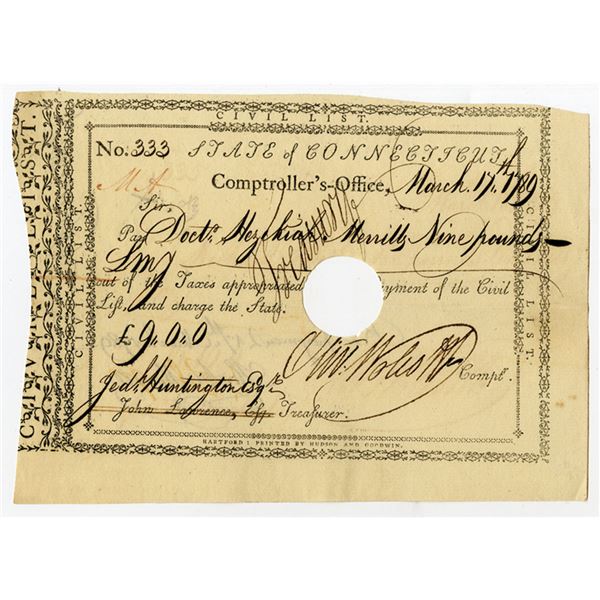 CIVIL LIST.
No. 333 STATE of CONNECTICUT
Comptroller's-Office, March 17th 1789
Sir,
Pay Doctr. Hezekiah Merrills Nine pounds
out of the Taxes appropriated yment of the Civil
List, and charge the State.
£ 9.0.0
Comptr.
Jedh. Huntington Esqr.
John Lawrence, Esq Treasurer.
HARTFORD: PRINTED BY HUDSON AND GOODWIN.
CIVIL LIST.
CIVIL LIST.